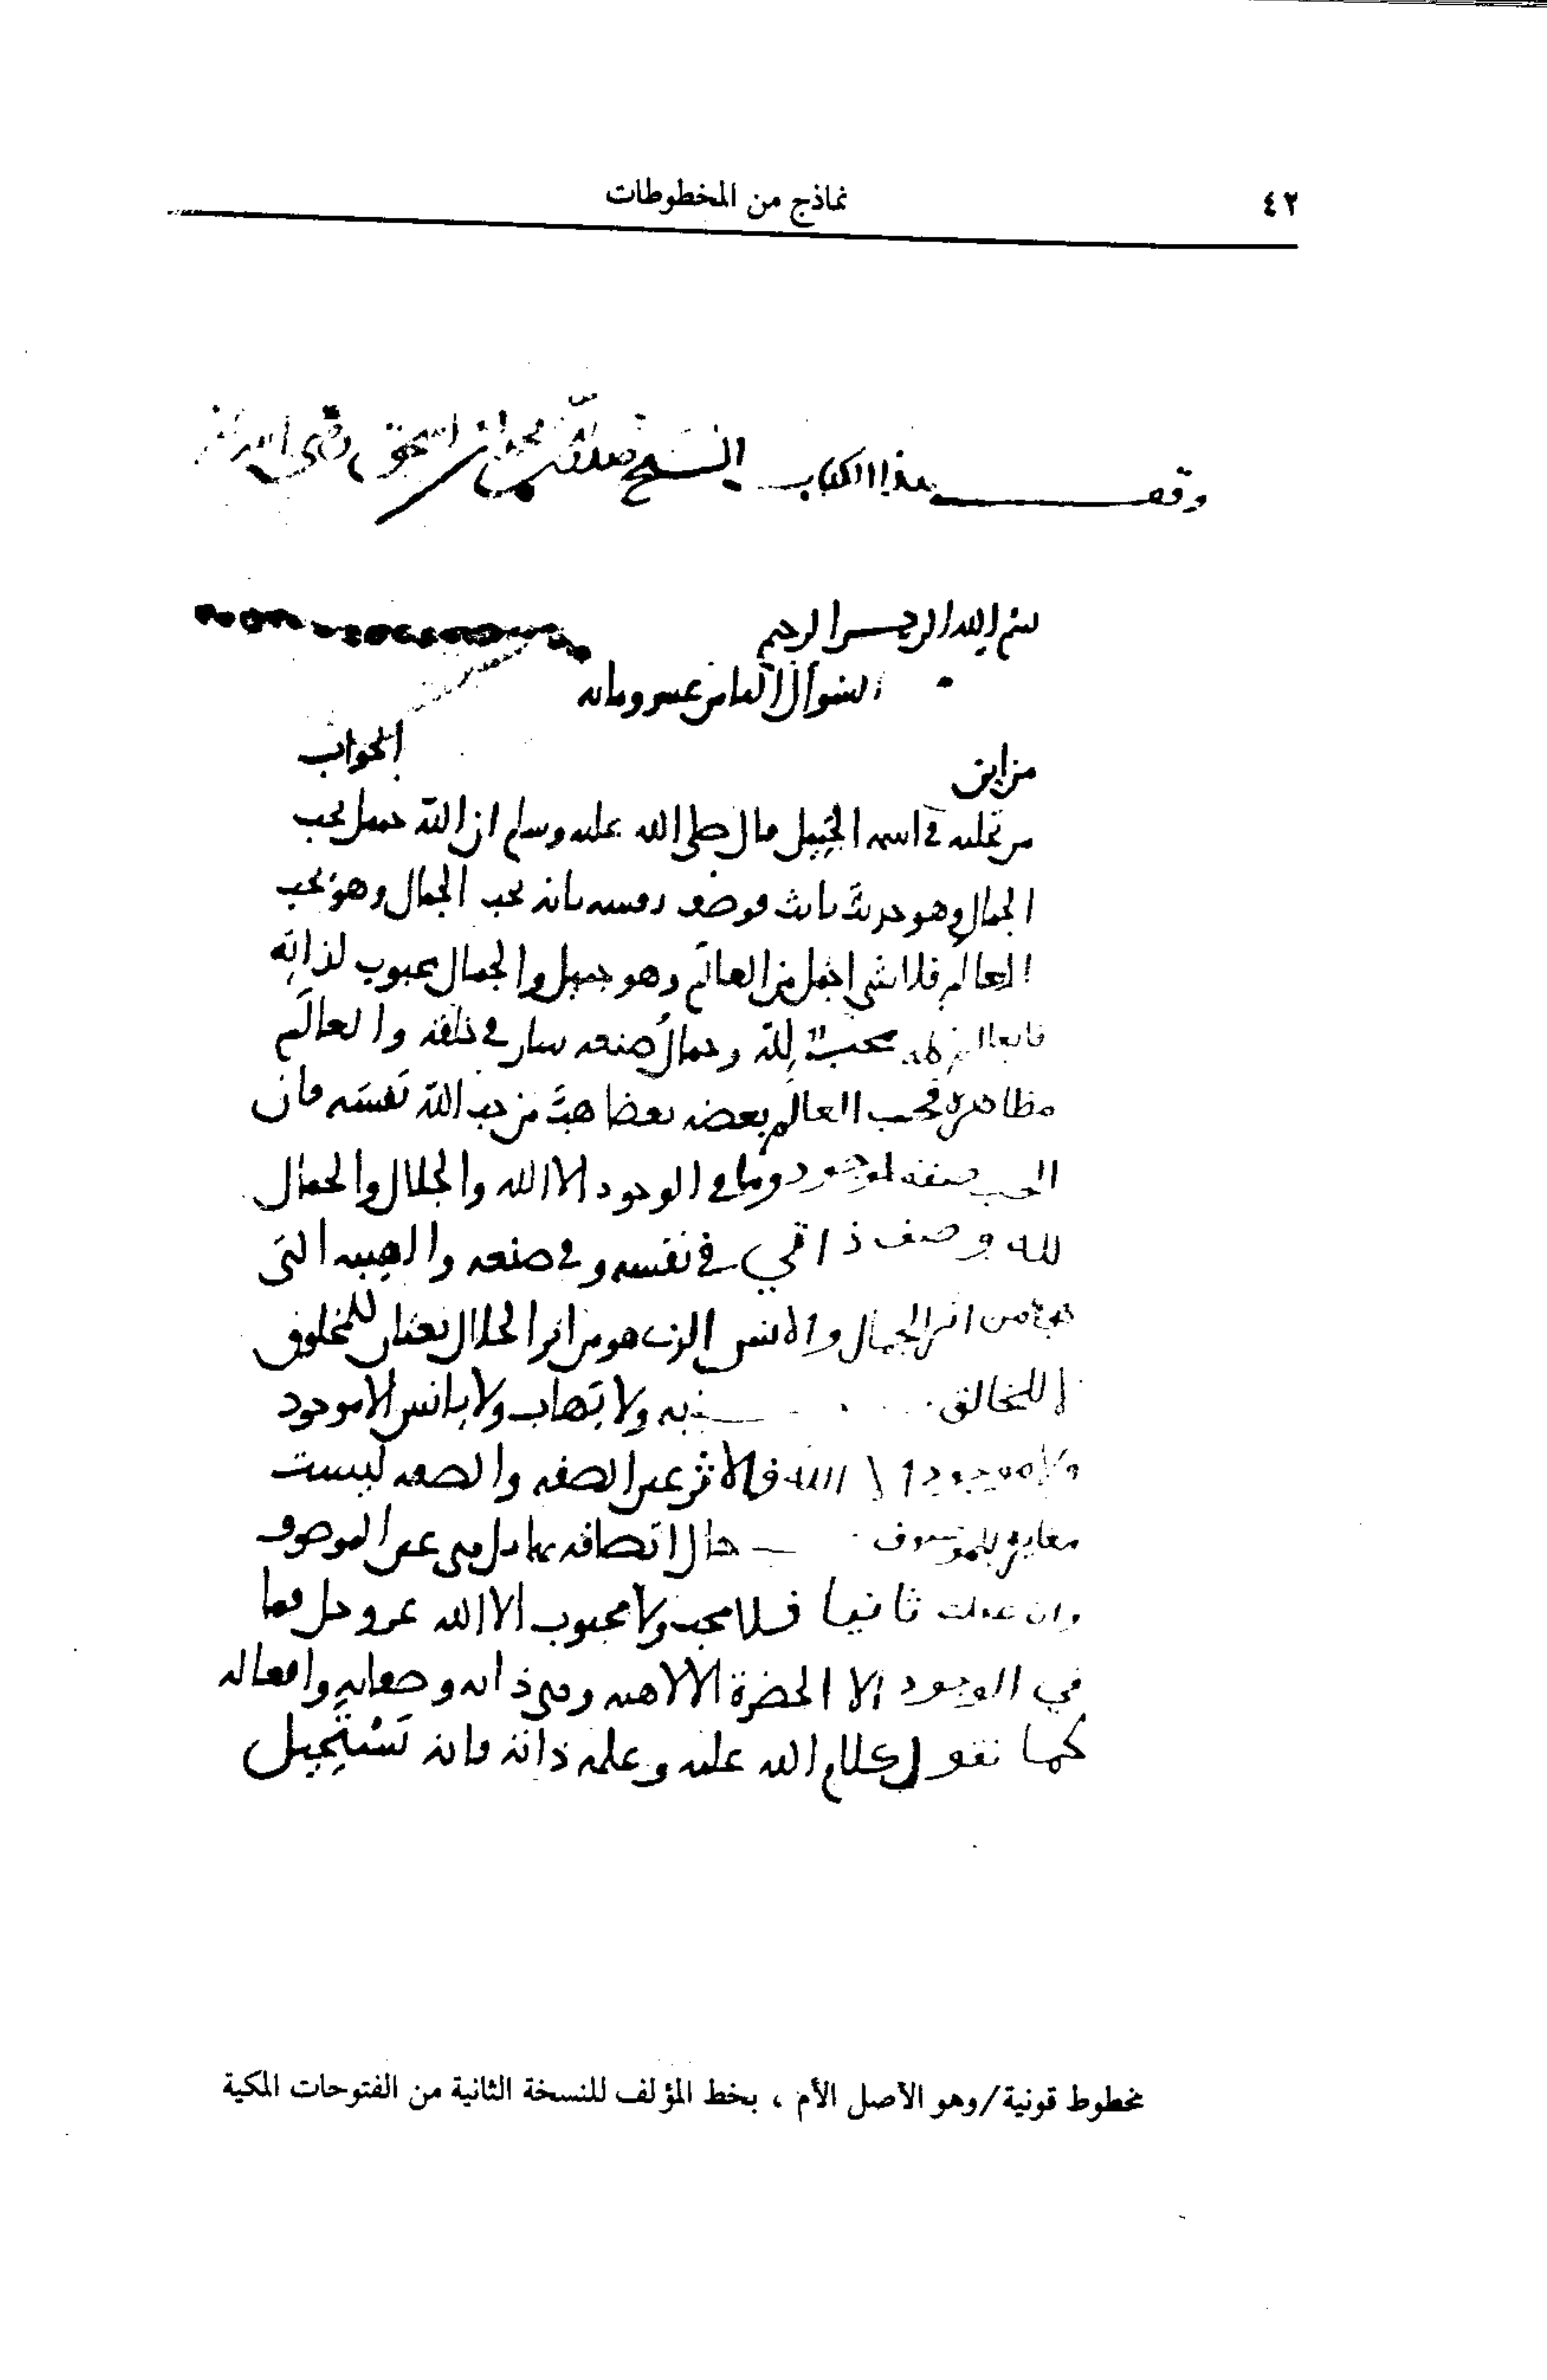 ٤٢
نماذج من المخطوطات
وقف هذا الكتاب الشيخ صدر الدين محمد بن اسحق رضي الله عنه
بسم الله الرحمن الرحيم
السوال الثامن عشر ومائه
من اين الجواب
من تجليه في اسمه الجميل قال صلى الله عليه وسلم ان الله جميل يحب
الجمال وهو حديث ثابت فوصف نفسه بانه يحب الجمال وهو يحب
العالم فلا شي اجمل من العالم وهو جميل والجمال محبوب لذاته
فالعالم كله محب لله وجمال صنعه سار في خلقه والعالم
مظاهره فحب العالم بعضه بعضا هو من حب الله نفسه فان
الحب صفة لموجود وما في الوجود الا الله والجلال والجمال
لله وصف ذاتي في نفسه وفي صنعه والهيبه التي
هي من اثر الجمال والانس الذي هو من اثر الجلال نعتان للمخلوق
لا للخالق به ولا يهاب ولا يانس الا موجود
ولا موجود الا الله فالاثر عين الصفه والصفه ليست
مغايرة للموصوف حال اتصافه بها بل هي عين الموصوف
وان عقلت ثانيا فلا محب ولا محبوب الا الله عز وجل فما
في الوجود الا الحضرة الالاهيه وهي ذاته وصفاته وافعاله
كما نقول كلام الله علمه وعلمه ذاته فانه يستحيل
مخطوط قونية/وهو الأصل الأم ، بخط المؤلف للنسخة الثانية من الفتوحات المكية